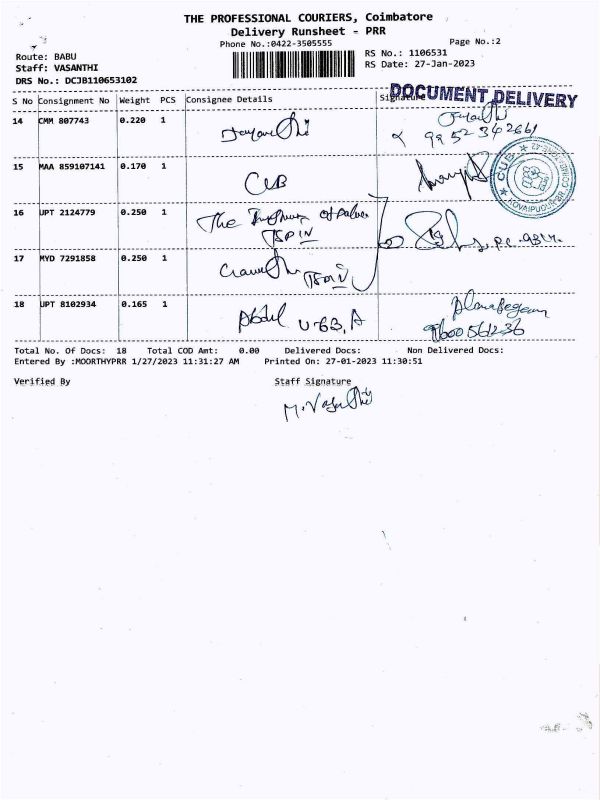 THE PROFESSIONAL COURIERS, Coimbatore
Delivery Runsheet - PRR
Phone No.:0422-3505555
Page No.:2
Route: BABU
RS No.: 1106531
Staff: VASANTHI
RS Date: 27-Jan-2023
DRS No.: DCJB110653102
DOCUMENT DELIVERY
S No Consignment No Weight PCS Consignee Details Signature
14 CMM 807743 0.220 1
9952342661
15 MAA 859107141 0.170 1 CUB
CUB
16 UPT 2124779 0.250 1 The
17 MYD 7291858 0.250 1
18 UPT 8102934 0.165 1 Abdul U-63, A
9600561236
Total No. Of Docs: 18 Total COD Amt: 0.00 Delivered Docs: Non Delivered Docs:
Entered By :MOORTHYPRR 1/27/2023 11:31:27 AM Printed On: 27-01-2023 11:30:51
Verified By Staff Signature
M. Vasanthi